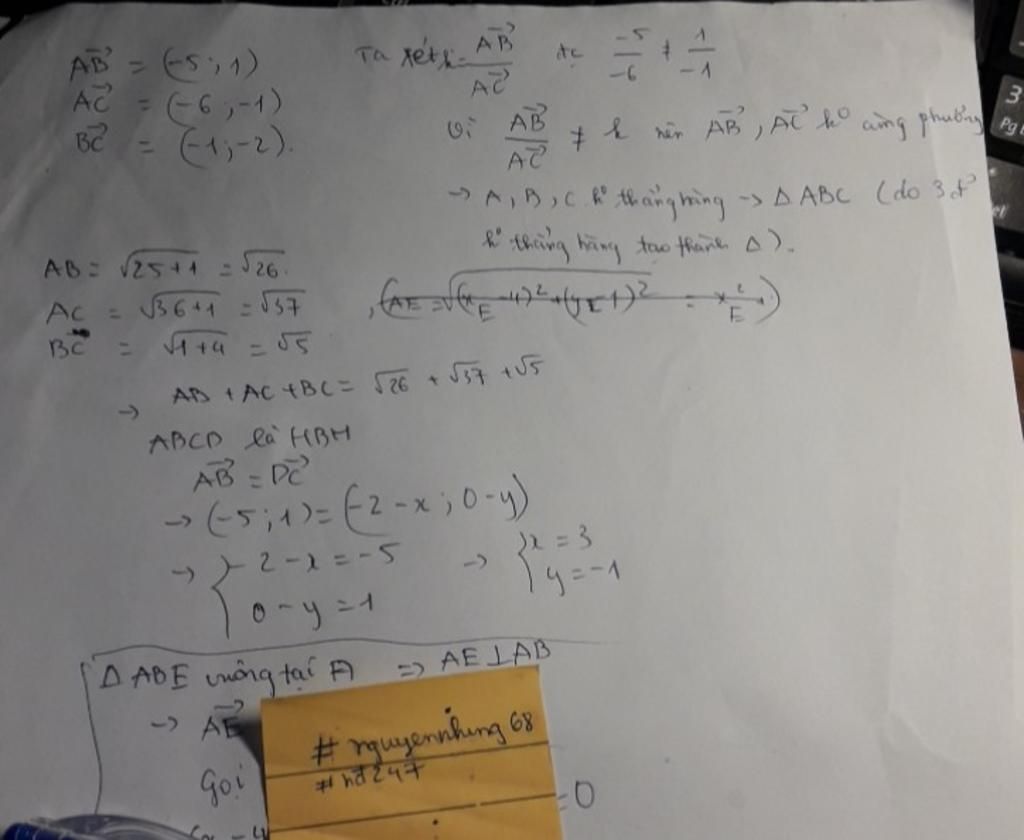 AB→ = (-5; 1)
AC→ = (-6, -1)
BC→ = (-1; -2).
Ta xét k = AB→/AC→ -5/-6 ≠ 1/-1
Vì AB→/AC→ ≠ k nên AB→, AC→ k° cùng phương
→ A, B, C k° thẳng hàng → Δ ABC (do 3 đ'
k° thẳng hàng tạo thành Δ).
AB = √25+1 = √26.
AC = √36+1 = √37
BC = √1+4 = √5
→ AB + AC + BC = √26 + √37 + √5
ABCD là HBH
AB→ = DC→
→ (-5; 1) = (-2-x; 0-y)
→ { -2-x = -5 → { x = 3
0-y = 1 y = -1
Δ ABE vuông tại A => AE ⊥ AB
→ AE→
Gọi
= 0
# nguyennhung 68
# hd247
3
Pg